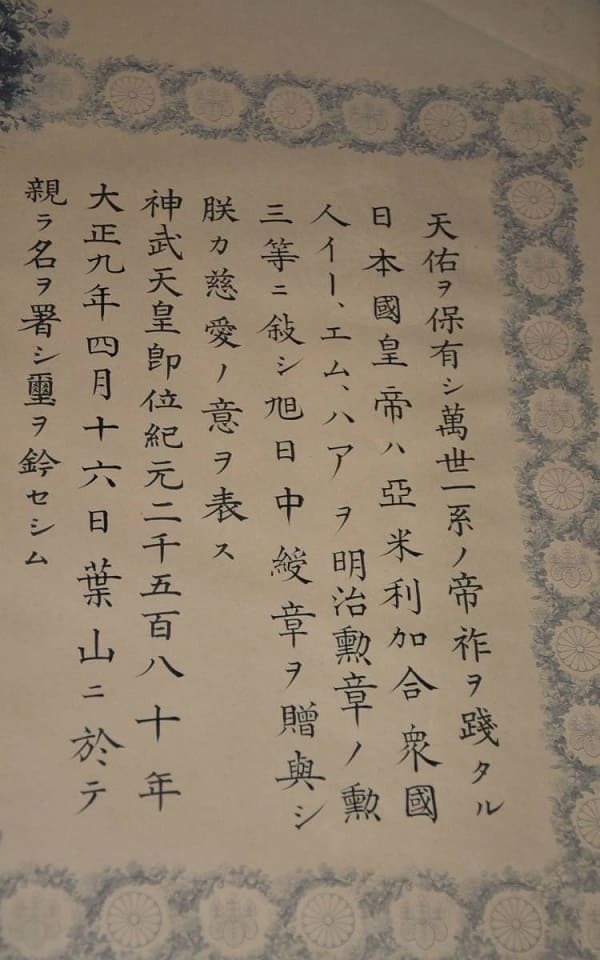 天佑ヲ保有シ萬世一系ノ帝祚ヲ踐タル
日本國皇帝ハ亞米利加合衆國
人イー、エム、ハアヲ明治勳章ノ勳
三等ニ敍シ旭日中綬章ヲ贈與シ
朕カ慈愛ノ意ヲ表ス
神武天皇即位紀元二千五百八十年
大正九年四月十六日葉山ニ於テ
親ラ名ヲ署シ璽ヲ鈐セシム